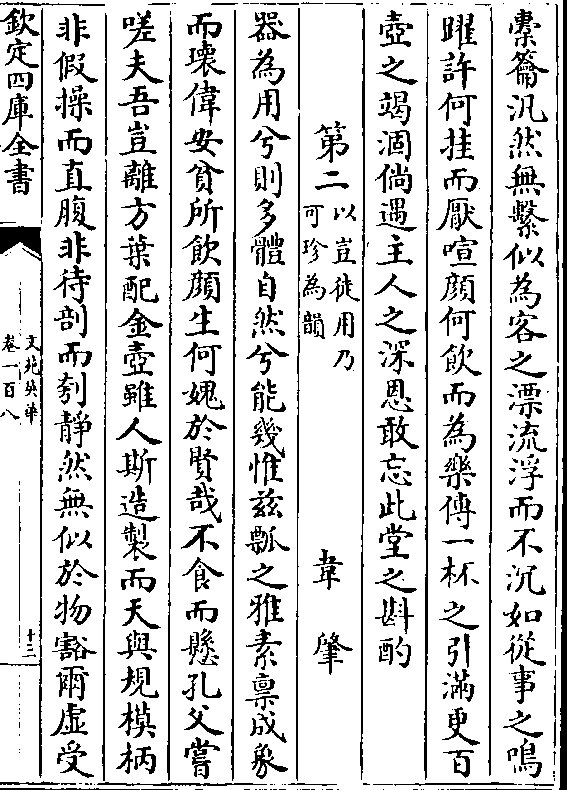 橐籥汎然無繫似為客之漂流浮而不沉如從事之鳴
躍許何挂而厭喧顔何飲而為樂傳一杯之引滿更百
壺之竭涸倘遇主人之深恩敢忘此堂之斟酌
第二以豈徒用乃可珍為韻　韋肇
器為用兮則多體自然兮能幾惟兹瓢之雅素禀成象
而瓌偉安貧所飲顔生何媿於賢哉不食而懸孔父嘗
嗟夫吾豈離方葉配金壺雖人斯造製而天與規模柄
非假操而直腹非待剖而刳靜然無似於物豁爾虛受
欽定四庫全書
文苑英華
卷一百八
十三